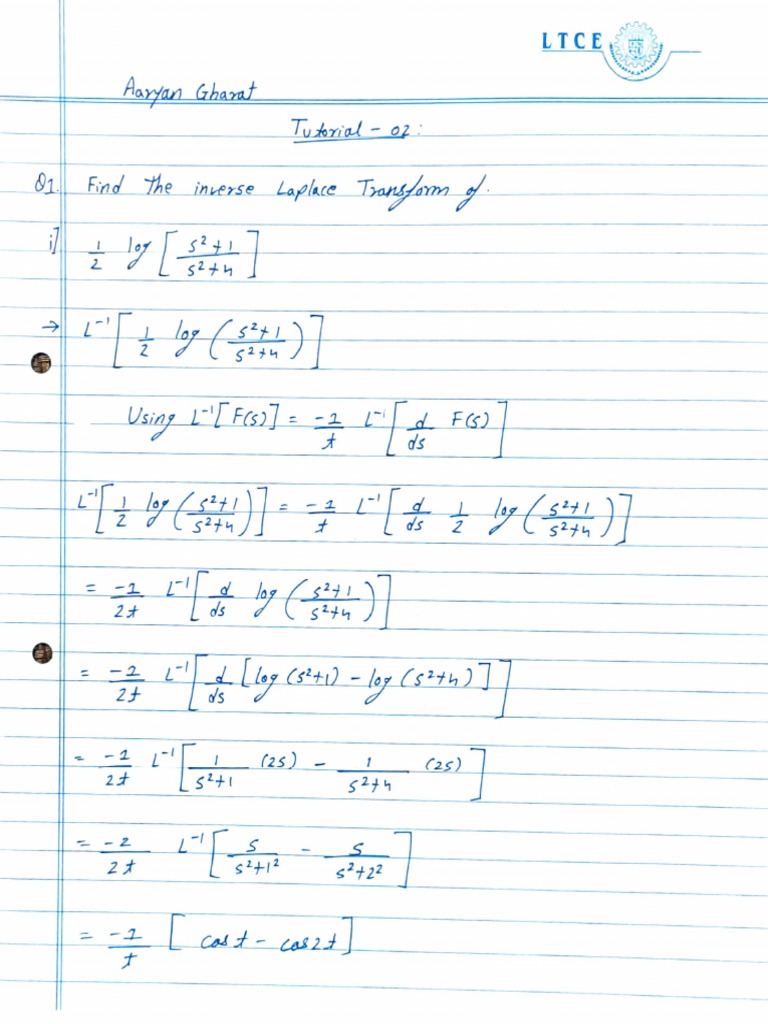 LTCE
Aaryan Gharat
Tutorial - 02:
Q1. Find the inverse Laplace Transform of.
i] 1/2 log [ (s²+1)/(s²+4) ]
→ L⁻¹ [ 1/2 log ( (s²+1)/(s²+4) ) ]
Using L⁻¹[F(s)] = -1/t L⁻¹ [ d/ds F(s) ]
L⁻¹ [ 1/2 log ( (s²+1)/(s²+4) ) ] = -1/t L⁻¹ [ d/ds 1/2 log ( (s²+1)/(s²+4) ) ]
= -1/2t L⁻¹ [ d/ds log ( (s²+1)/(s²+4) ) ]
= -1/2t L⁻¹ [ d/ds [ log (s²+1) - log (s²+4) ] ]
= -1/2t L⁻¹ [ 1/(s²+1) (2s) - 1/(s²+4) (2s) ]
= -2/2t L⁻¹ [ s/(s²+1²) - s/(s²+2²) ]
= -1/t [ cost - cos2t ]